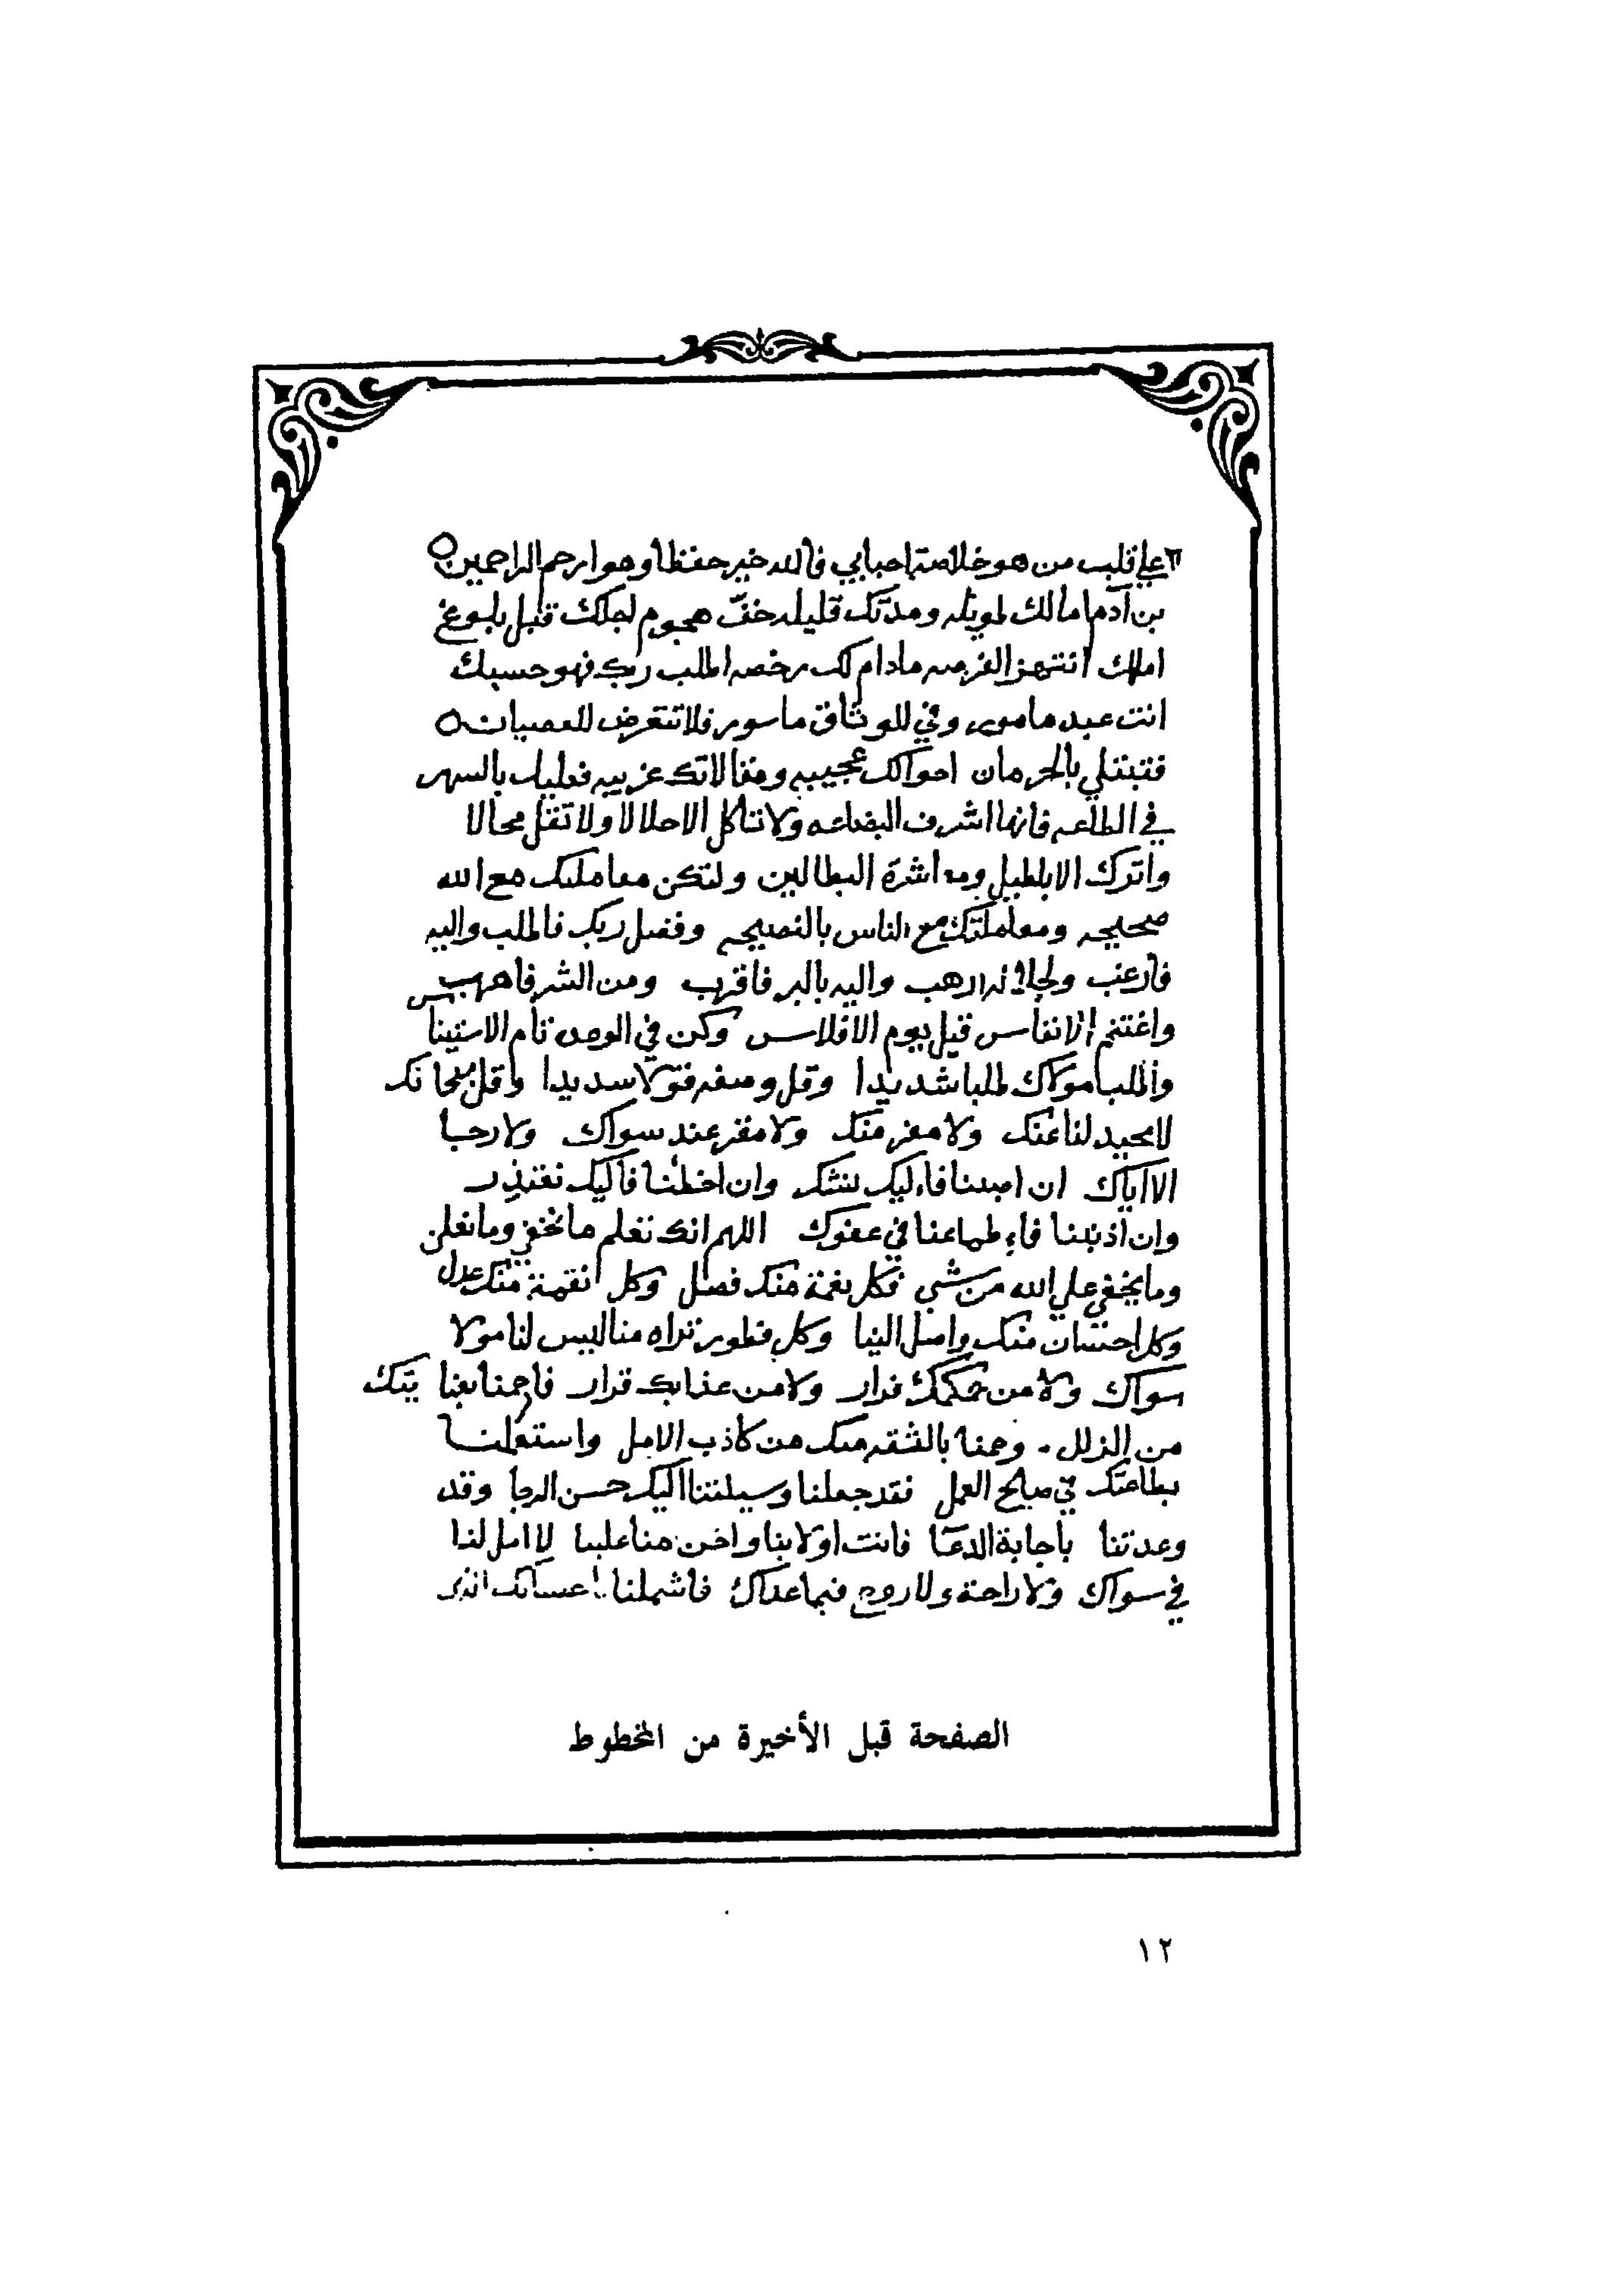 علي قلب من هو خلاصة احبابي فالله خير حفظا وهو ارحم الراحمين
بن آدم امالك طويله ومدتك قليله خف هجوم اجلك قبل بلوغ
املك انتهز الفرصه مادام لك رخصه اطلب ربك فهو حسبك
انت عبد مامور وفي الوثاق ماسور فلا تتعرض للعصيان
فتبتلي بالحرمان احوالك عجيبه ومقالاتك غريبه فعليك بالسهر
في الطاعه فانها اشرف البضاعه ولا تاكل الا حلالا ولا تقل محالا
واترك الاباطيل ومعاشرة البطالين ولتكن معاملتك مع الله
صحيحه ومعاملتك مع الناس بالنصيحه وفضل ربك فاطلب واليه
فارغب ولجلاله ارهب واليه بالبر فاقرب ومن الشر فاهرب
واغتنم الانفاس قبل يوم الافلاس وكن في الوحدة تام الاستيناس
واطلب مولاك طلبا شديدا وقل وصفه قولا سديدا وقل سبحانك
لا محيد لنا عنك ولا مفر منك ولا مقر عند سواك ولا رجا
الا اياك ان اصبنا فاليك نشك وان اخطنا فاليك نعتذر
وان اذنبنا فاطماعنا في عفوك اللهم انك تعلم ما نخفي وما نعلن
وما يخفي علي الله من شي فكل نعمة منك فضل وكل نقمة منك عدل
وكل احسان منك واصل الينا وكل فطور تراه منا اليس لنا مولا
سواك ولا من حكمك فرار ولا من عذابك قرار فاحمنا بعنايتك
من الزلل وحمنا بالثقه منك من كاذب الامل واستعملنا
بطاعتك في صالح العمل فقد جعلنا وسيلتنا اليك حسن الرجا وقد
وعدتنا باجابة الدعا فانت اولا بنا واحن منا علينا لا امل لنا
في سواك ولا راحة ولا روح فيما عداك فاشملنا
الصفحة قبل الأخيرة من المخطوط
١٢